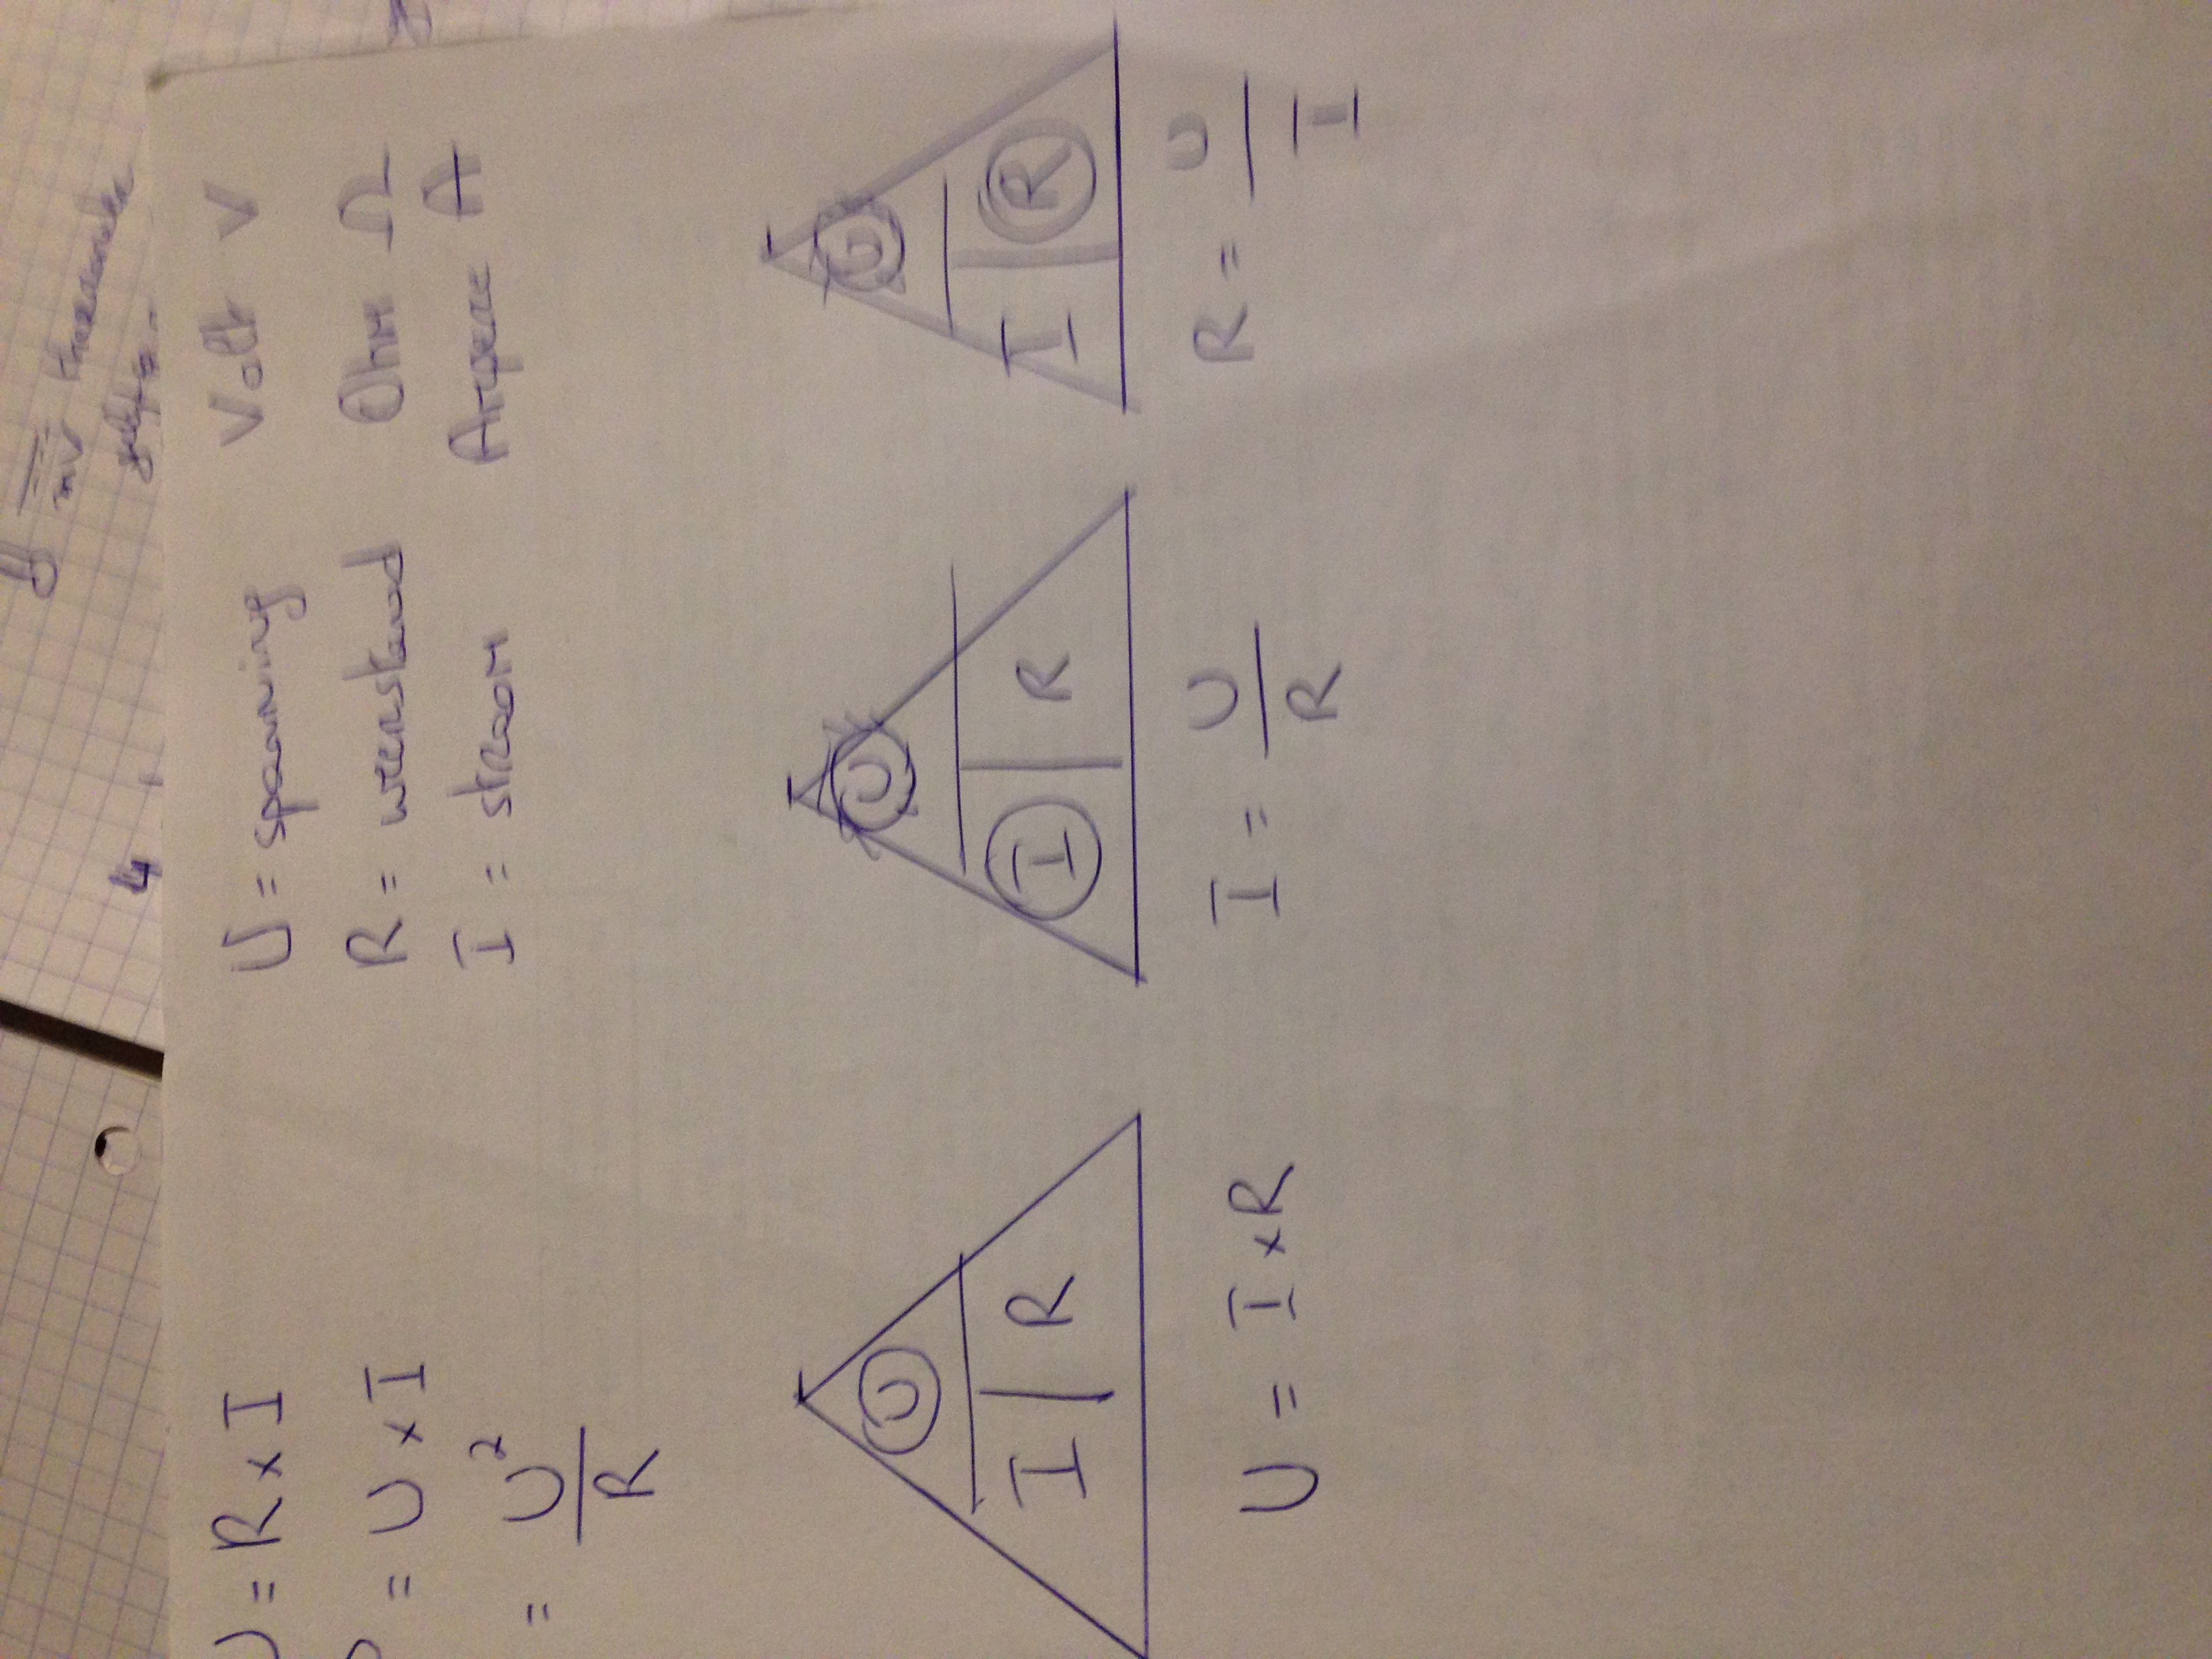 4
mV
U = R x I
= U x I
= U²
R
U = spanning Volt V
R = weerstand Ohm Ω
I = stroom Ampere A
U
I | R
U = I x R
U
I | R
I = U
R
U
I | R
R = U
I